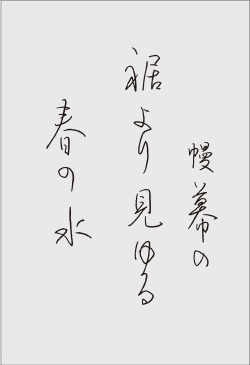 幔幕の
裾より見ゆる
春の水